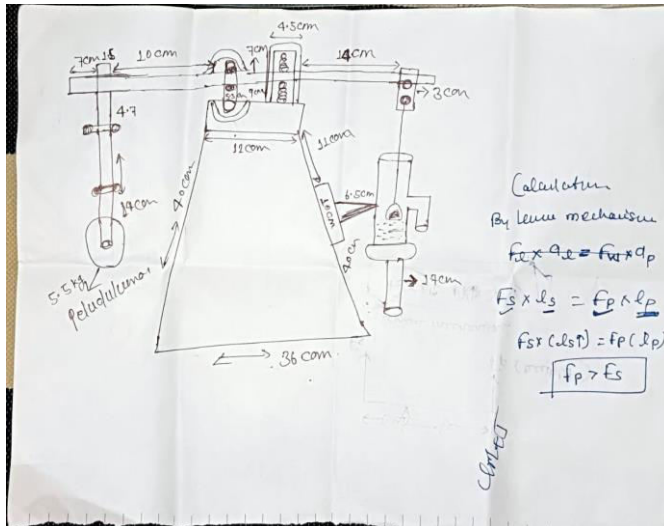 4.5cm
7cm
1.5
10cm
7cm
14cm
3com
4.7
9cm
12com
11com
6.5cm
10cm
40cm
40cm
14cm
14cm
5.5kg
Peludulumai
36com
Calculation
By leaver mechanism
Fl x al = Fw x ap
Fs x ls = Fp x lp
Fs x (ls↑) = Fp (lp)
fp > Fs